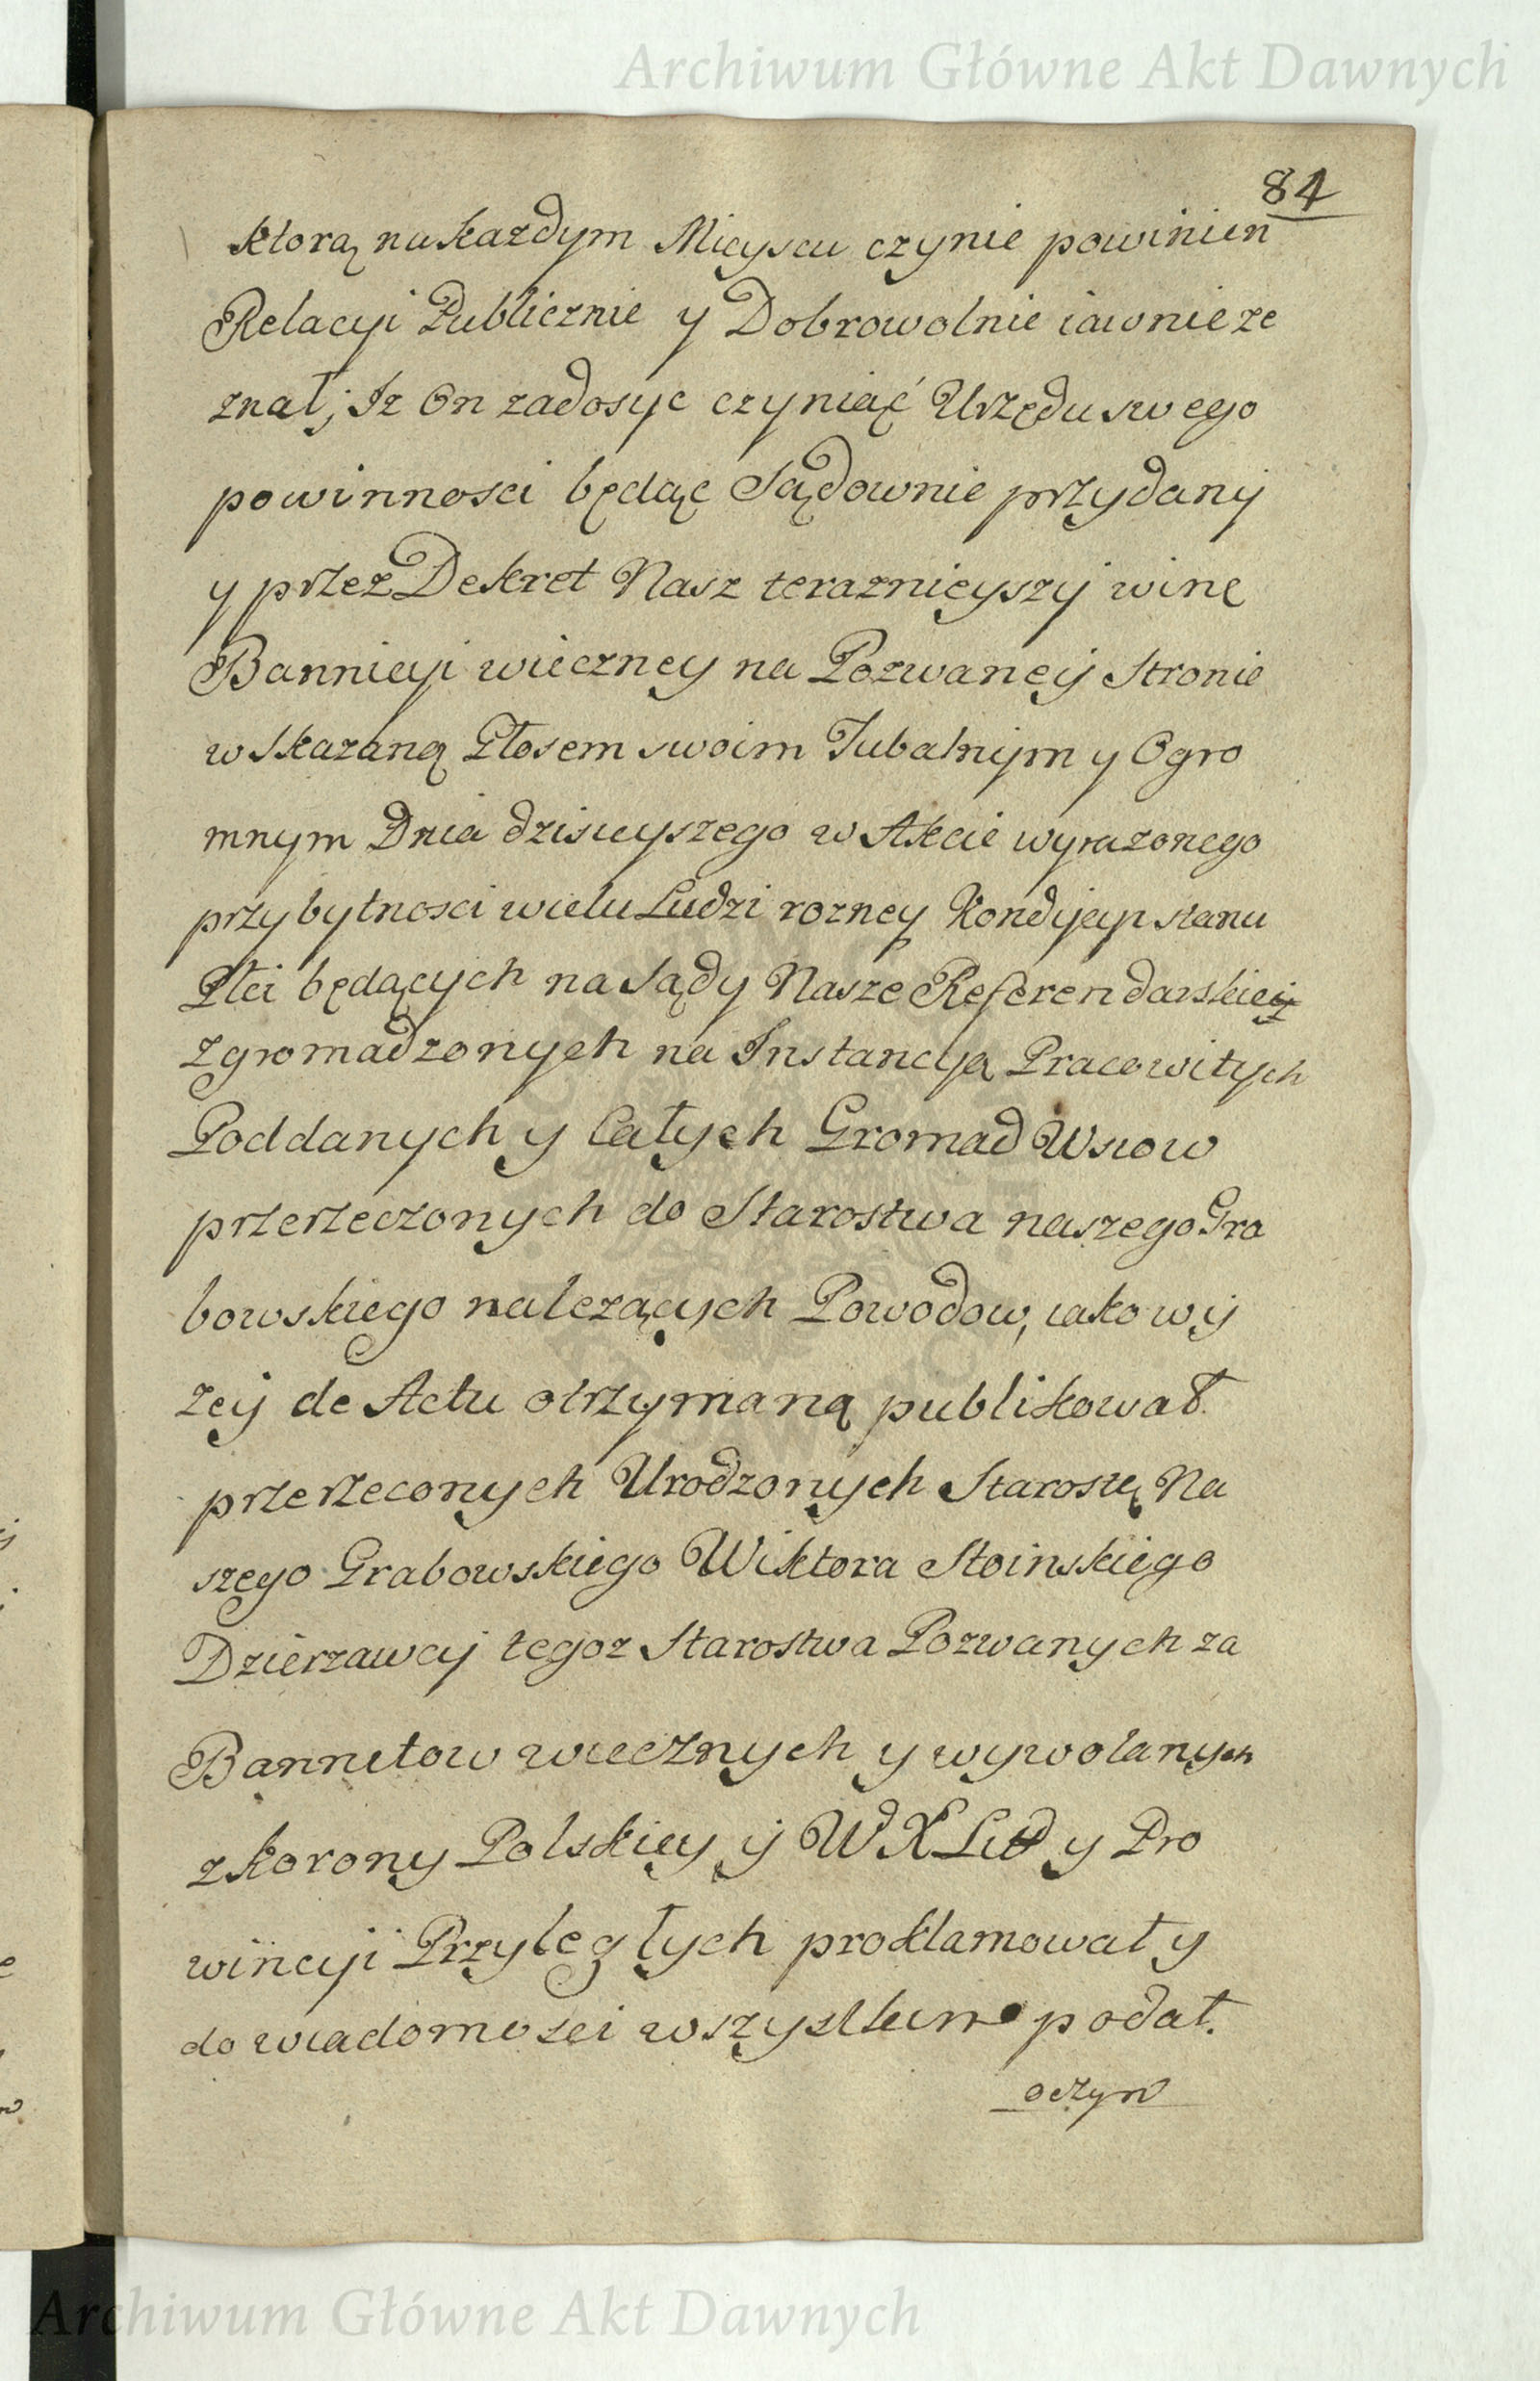 Archiwum Główne Akt Dawnych
84
ktorą na każdym Mieyscu czynie powinien
Relacyi Publicznie y Dobrowolnie iawnie ze
znał; Iz On zadosyc czyniąć Urzędu swego
powinnosci będąc Sądownie przydany
y przez Dekret Nasz teraznieyszy winę
Bannicyi wieczney na Pozwaney Stronie
wskazaną Głosem swoim Tubalnym y Ogro
mnym Dnia dzisieyszego w Akcie wyrazonego
przy bytnosci wielu Ludzi rozney Kondycyi stanu
Płci będących na Sądy Nasze Referendarskiey
zgromadzonych na Instancyą Pracowitych
Poddanych y Całych Gromad Wsiow
przerzeczonych do Starostwa naszego Gra
bowskiego nalezących Powodow, iako wy
zey de Actu otrzymaną publikował
przerzeconych Urodzonych Starostę Na
szego Grabowskiego Wiktora Stoinskiego
Dzierzawcy tegoz Starostwa Pozwanych za
Bannitow wiecznych y wywołanych
z korony Polskiey y W X Lit y Pro
wincyi Przyległych proklamował y
do wiadomosci wszystkim podał.
oczyn
Archiwum Główne Akt Dawnych